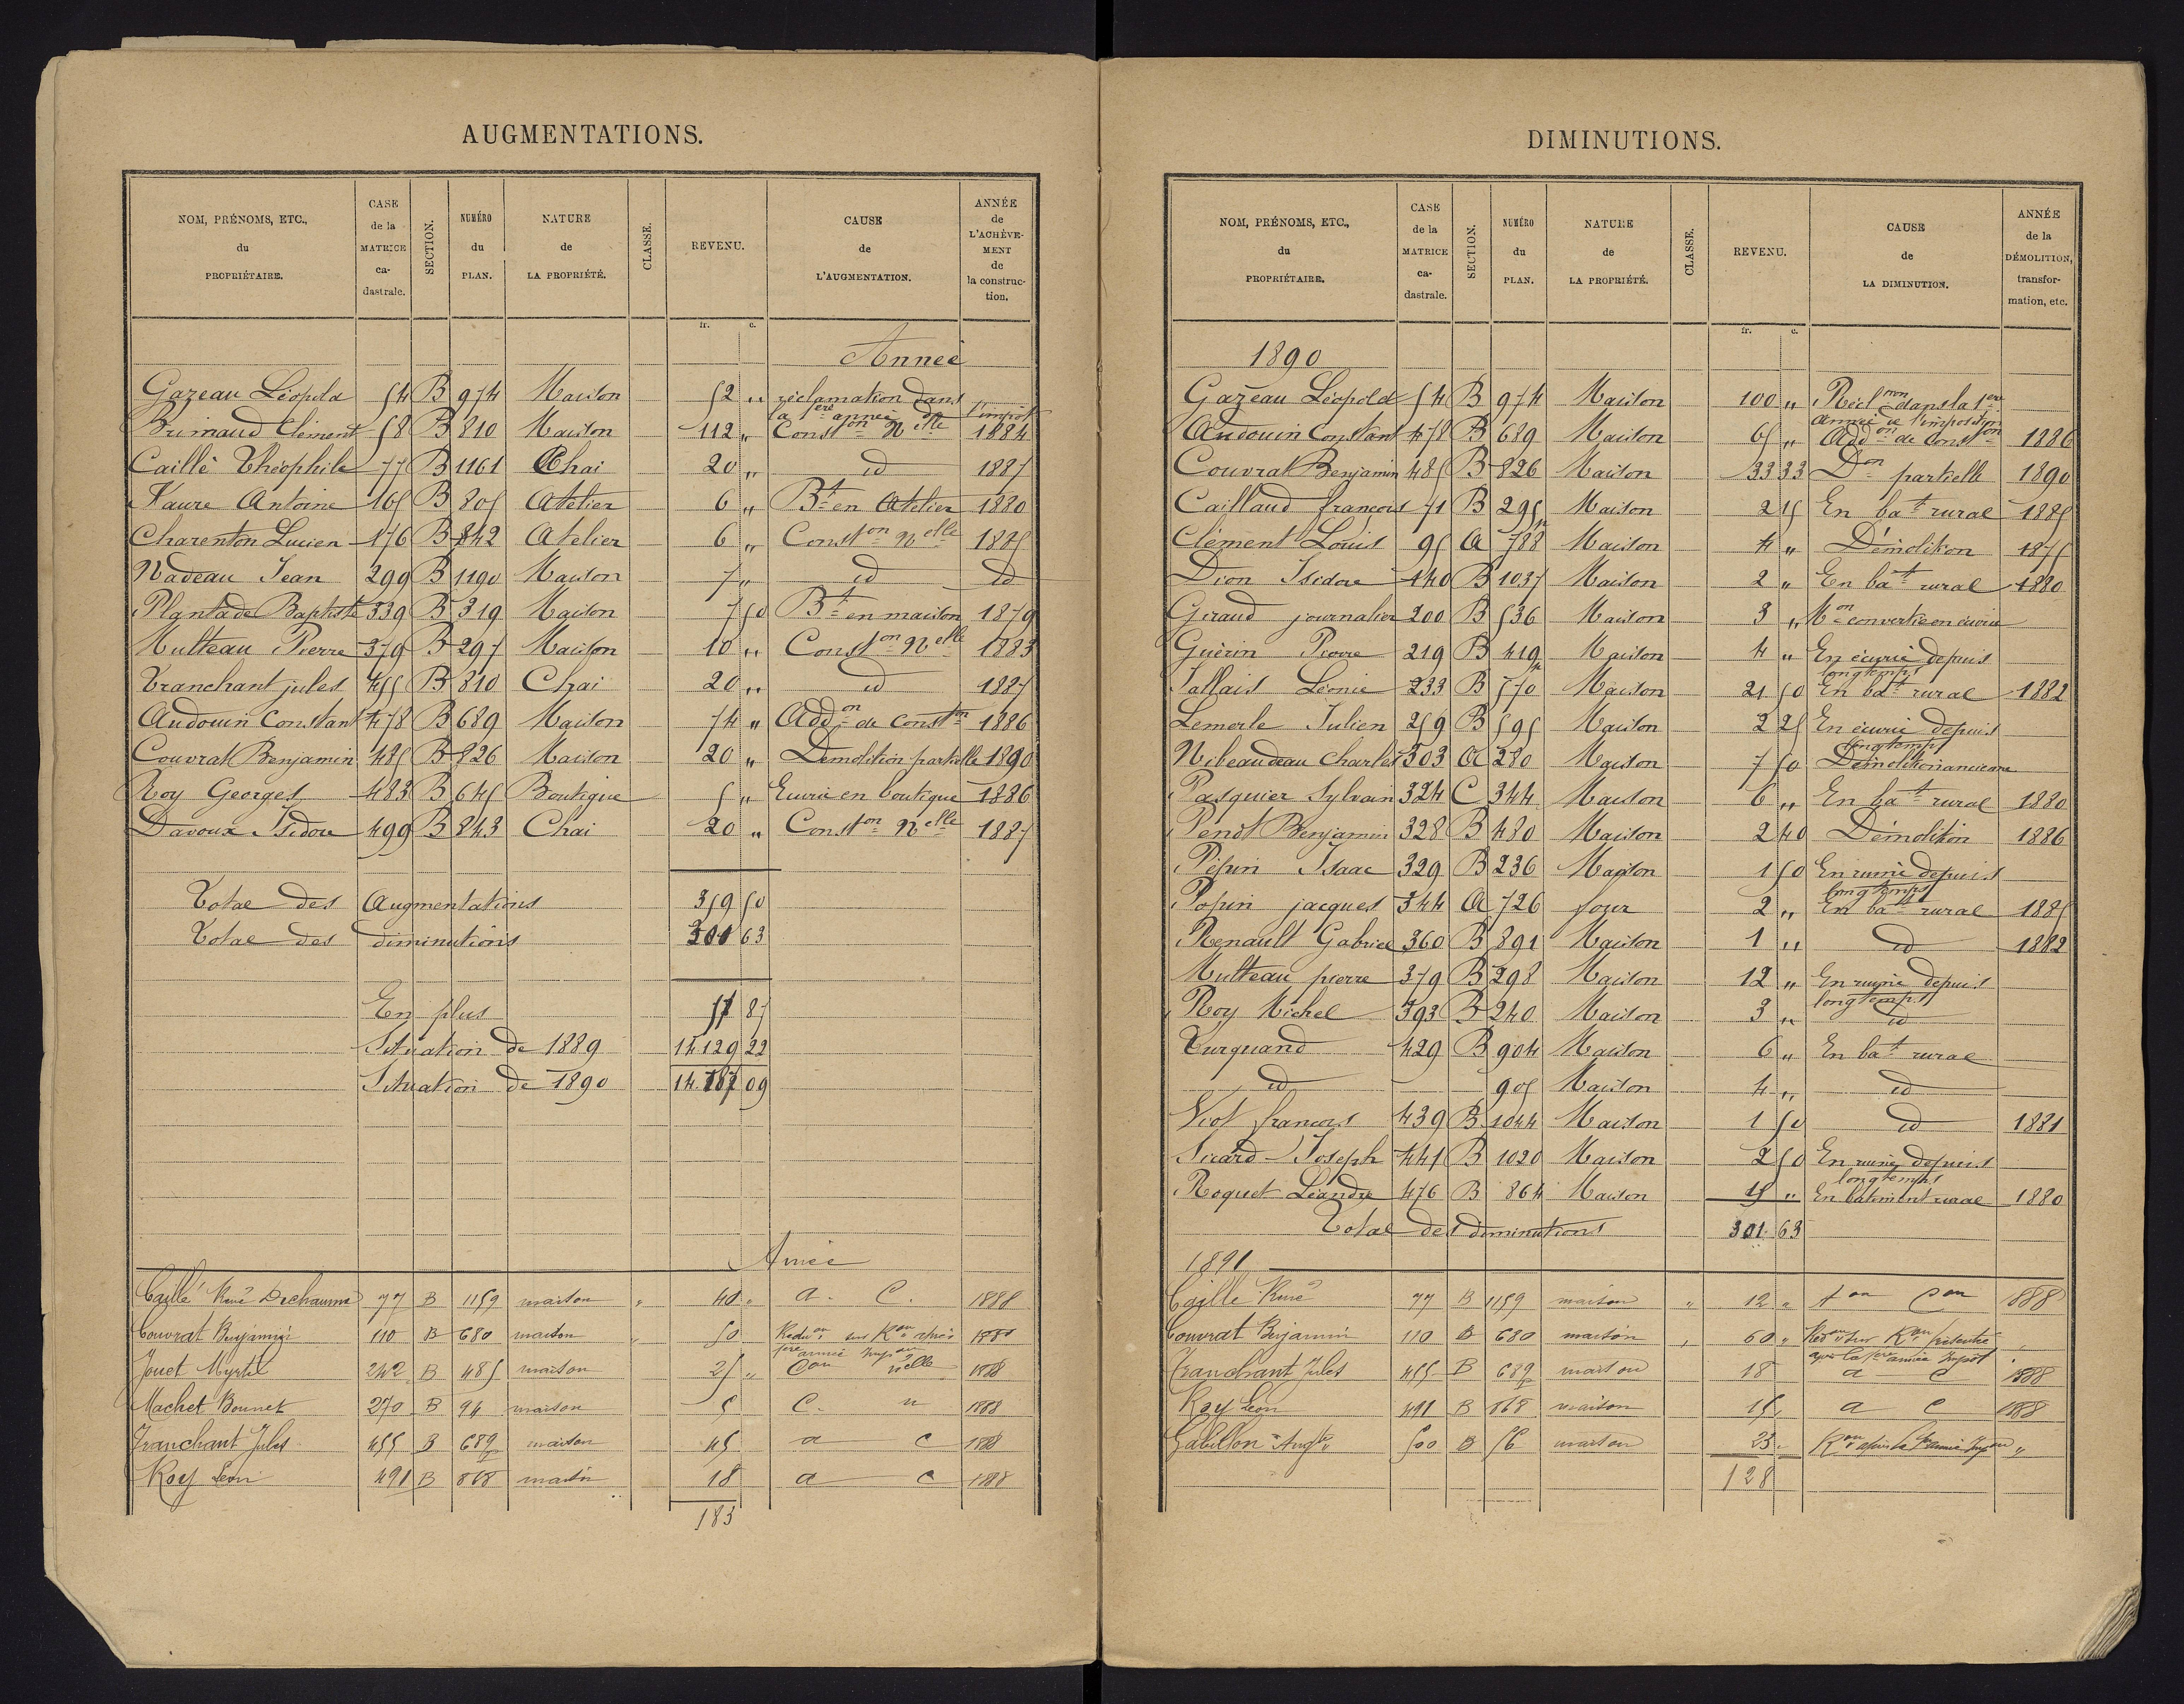 AUGMENTATIONS.
NOM, PRÉNOMS, ETC., du PROPRIÉTAIRE. CASE de la MATRICE ca-dastrale. SECTION. NUMÉRO du PLAN. NATURE de LA PROPRIÉTÉ. CLASSE. REVENU. CAUSE de L'AUGMENTATION. ANNÉE de L'ACHÈVE-MENT de la construc-tion.
fr. c.
Année
Gazeau Léopold 54 B 974 Maison 52 „ réclamation dans la 1ère année de l'impôt
Brimaud Clément 58 B 810 Maison 112 „ Conston Nelle 1884
Caillé Théophile 77 B 1161 Chai 20 „ id 1887
Faure Antoine 165 B 805 Atelier 6 „ Bt en Atelier 1880
Charenton Lucien 176 B 842 Atelier 6 „ Conston Nelle 1885
Nadeau Jean 299 B 1190 Maison 7 „ id id
Plantade Baptiste 339 B 319 Maison 7 50 Bt en maison 1879
Multeau Pierre 379 B 297 Maison 10 „ Conston Nelle 1883
Tranchant jules 455 B 810 Chai 20 „ id 1887
Audouin Constant 478 B 689 Maison 74 „ Addon de Conston 1886
Couvrat Benjamin 485 B 826 Maison 20 „ Démolition partielle 1890
Roy Georges 483 B 645 Boutique 5 „ Ecurie en boutique 1886
Davoux Isidore 499 B 843 Chai 20 „ Conston Nelle 1887
Total des Augmentations 359 50
Total des diminutions 301 63
En plus 57 87
Situation de 1889 14.129 22
Situation de 1890 14.187 09
Année
Caillé René Dechaume 77 B 1159 maison „ 40 „ a. C. 1888
Couvrat Benjamin 110 B 680 maison „ 50 Reduon sur Ron après 1ère année Impon 1888
Jouet Myrtil 242 B 485 maison 25 „ Con nelle 1888
Machet Bonnet 270 B 94 maison 5 C. n 1888
Tranchant Jules 455 B 689 maison 45 a C 1888
Roy Léon 491 B 868 maison 18 a C 1888
183
DIMINUTIONS.
NOM, PRÉNOMS, ETC., du PROPRIÉTAIRE. CASE de la MATRICE ca-dastrale. SECTION. NUMÉRO du PLAN. NATURE de LA PROPRIÉTÉ. CLASSE. REVENU. CAUSE de LA DIMINUTION. ANNÉE de la DÉMOLITION, transfor-mation, etc.
fr. c.
1890
Gazeau Léopold 54 B 974 Maison 100 „ Réclmon dans la 1ère année de l'imposition
Audouin Constant 478 B 689 Maison 65 „ Addon de Conston 1886
Couvrat Benjamin 485 B 826 Maison 33 33 Don partielle 1890
Caillaud françois 71 B 295 Maison 2 25 En bat rural 1885
Clément Louis 95 A 788 Maison 4 „ Démolition 1875
Dion Isidore 140 B 1037 Maison 2 „ En bat rural 1880
Giraud journalier 200 B 536 Maison 3 „ Mon convertie en écurie
Guérin Pierre 219 B 419 Maison 4 „ En écurie depuis longtemps
Jallais Léonie 233 B 570 Maison 21 50 En bat rural 1882
Lemerle Julien 259 B 595 Maison 2 25 En écurie depuis longtemps
Nibeaudeau Charles 303 A 280 Maison 7 50 Démolition ancienne
Pasquier Sylvain 324 C 344 Maison 6 „ En bat rural 1880
Penot Benjamin 328 B 480 Maison 2 40 Démolition 1886
Pépin Isaac 329 B 236 Maison 1 50 En ruine depuis longtemps
Popin jacques 344 A 726 four 2 „ En bat rural 1885
Renault Gabriel 360 B 891 Maison 1 „ id 1882
Multeau pierre 379 B 298 Maison 12 „ En ruine depuis longtemps
Roy Michel 393 B 240 Maison 3 „ id
Turquand 429 B 904 Maison 6 „ En bat rural
id 905 Maison 4 „ id
Viot françois 439 B 1044 Maison 1 50 id 1881
Sicard Joseph 441 B 1020 Maison 2 50 En ruine depuis longtemps
Roquet Léandre 476 B 864 Maison 15 „ En batiment rural 1880
Total des diminutions 301 63
1891
Caille René 77 B 1159 maison „ 12 „ aon Con 1888
Couvrat Benjamin 110 B 680 maison „ 60 „ Redon sur Ron présentée après la 1ère année Impôt
Tranchant Jules 455 B 689 maison 18 a C 1888
Roy Léon 491 B 868 maison 15 „ a C 1888
Gabillon Augte 500 B 56 maison 23 „ Ron après la 1ère année Impon „
128